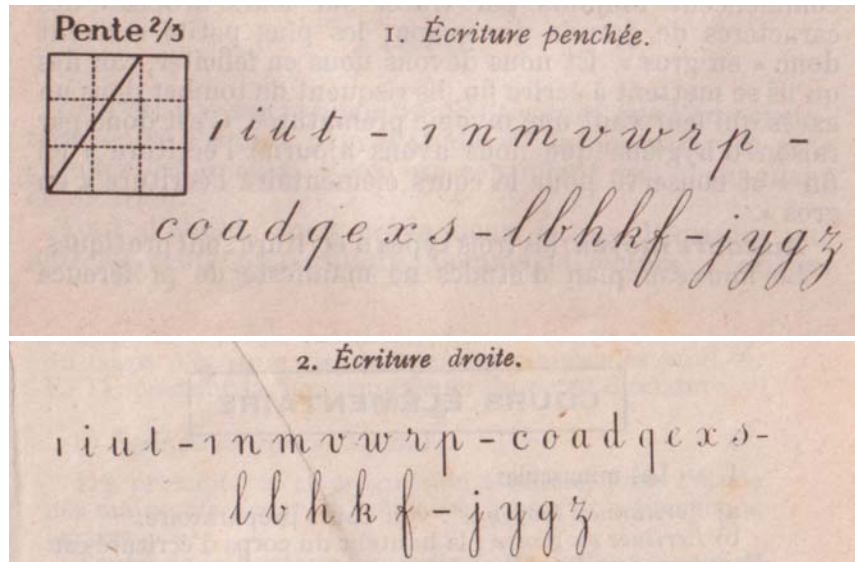 Pente 2/3
1. Écriture penchée.
ı i u t - ı n m v w r p -
c o a d q e x s - l b h k f - j y g z
2. Écriture droite.
ı i u t - ı n m v w r p - c o a d q e x s -
l b h k f - j y g z